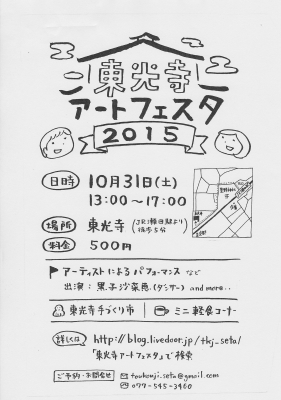 東光寺
アートフェスタ
2015
日時 10月31日(土)
13:00〜17:00
場所 東光寺 (JR瀬田駅より
徒歩5分
料金 500円
アーティストによる パフォーマンス など
出演: 黒子沙菜恵(ダンサー) and more..
東光寺手づくり市 ミニ軽食コーナー
詳しくは http://blog.livedoor.jp/tkj_seta/
「東光寺アートフェスタ」で検索
ご予約・お問合せ toukouji.seta@gmail.com
077-545-3460